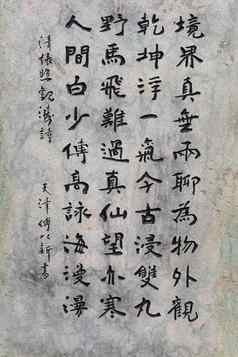 境界真無兩聊為物外觀
乾坤浮一氣今古浸雙丸
野馬飛難過真仙望亦寒
人間白少傅高詠海漫漫
清張照觀海詩 天津傅以新書